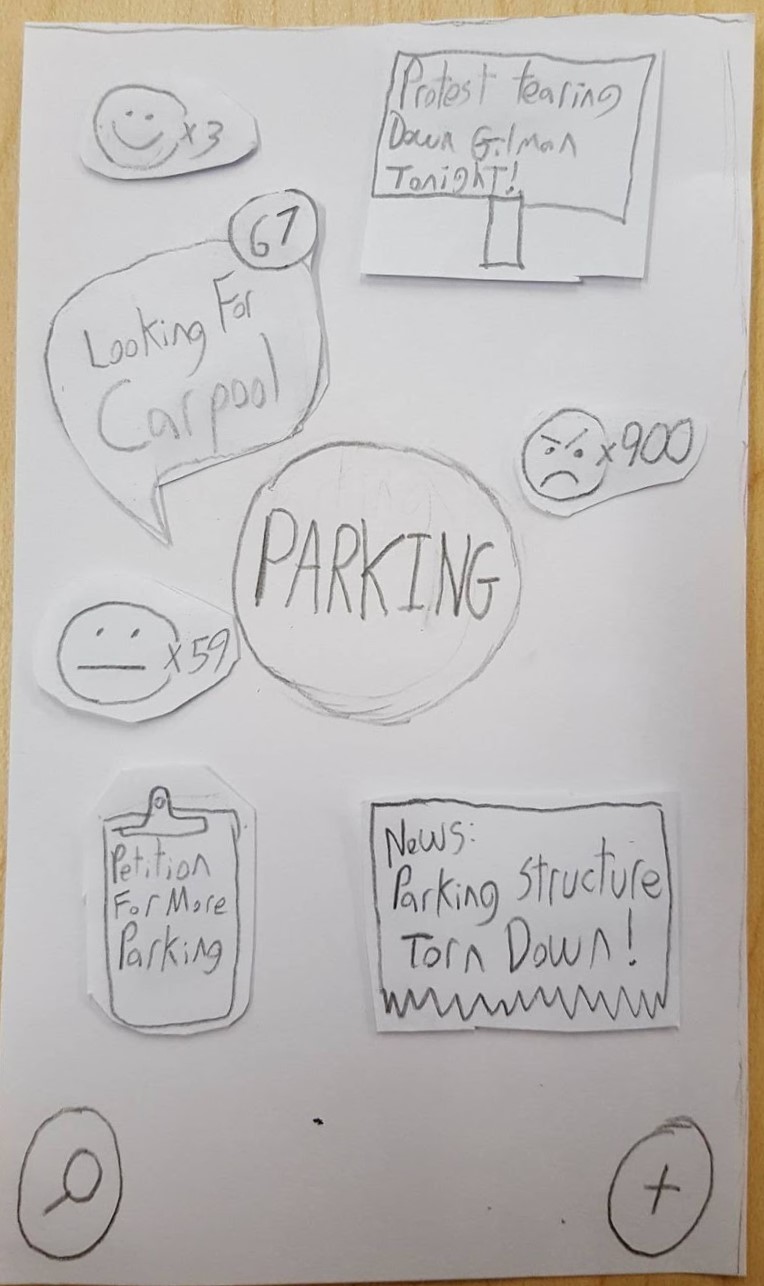 x3
Protest tearing
Down Gilman
Tonight!
67
Looking For
Carpool
x900
PARKING
x59
Petition
For More
Parking
News:
Parking Structure
Torn Down!
+